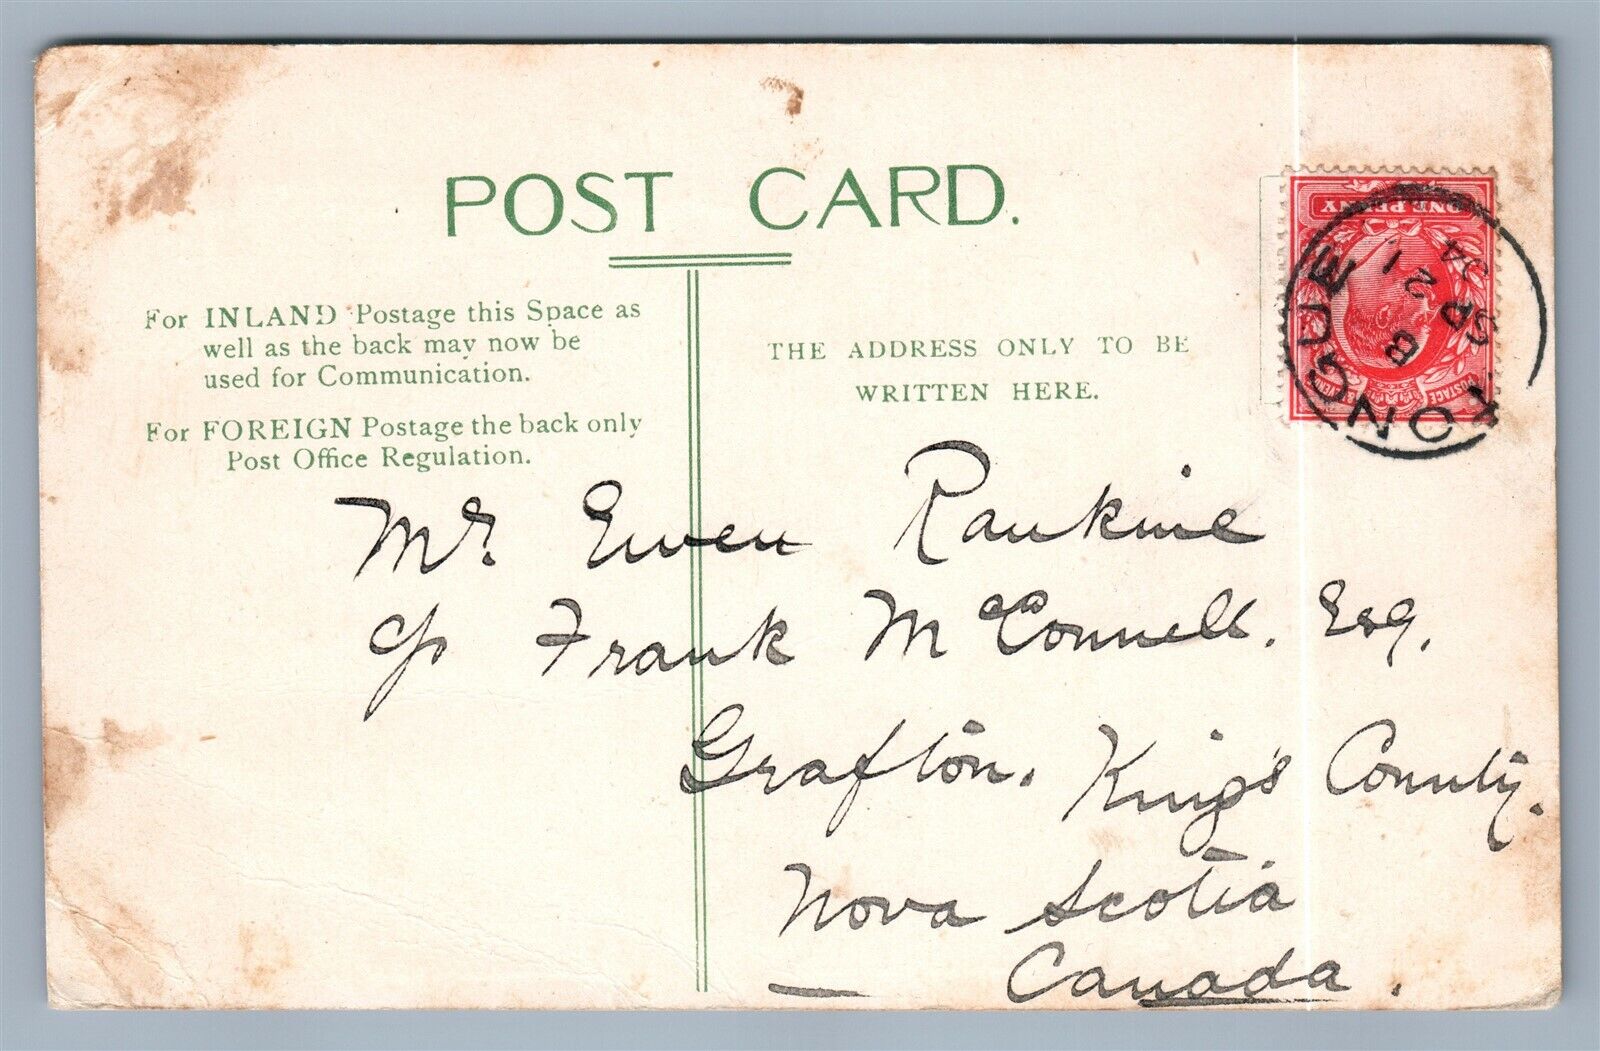 POST CARD.
For INLAND Postage this Space as
well as the back may now be
used for Communication.
For FOREIGN Postage the back only
Post Office Regulation.
THE ADDRESS ONLY TO BE
WRITTEN HERE.
ONE PENNY
POSTAGE
TONGUE
B
SP 21
04
Mr. Ewen Rankine
c/o Frank McConnell. Esq.
Grafton. King's County.
Nova Scotia
Canada.